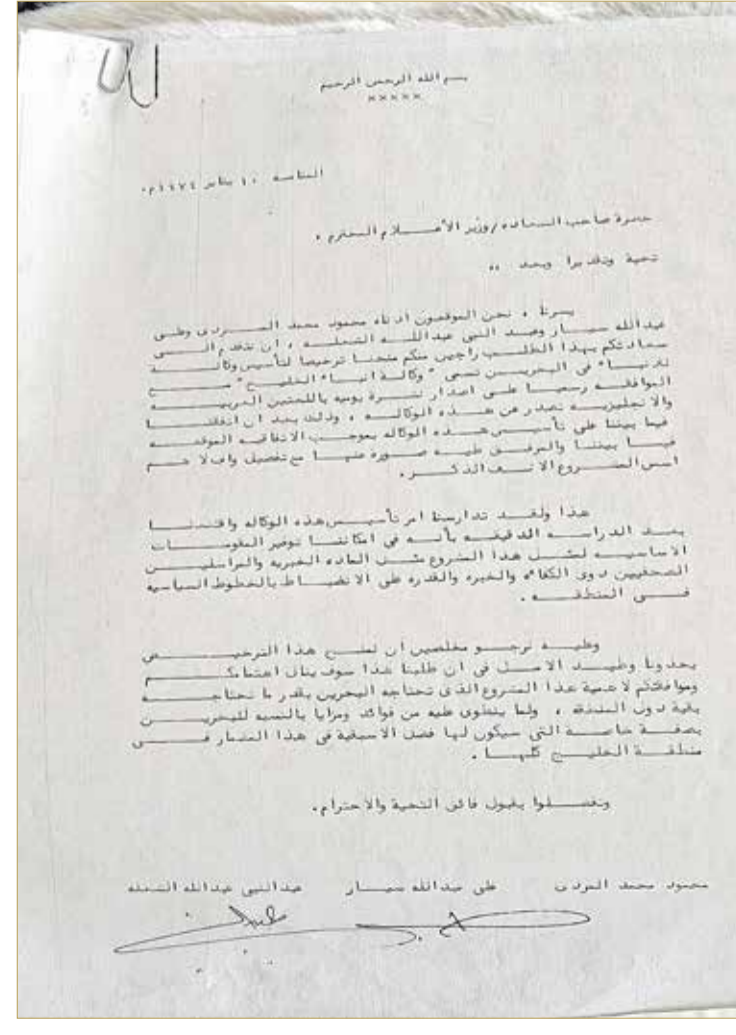 بسم الله الرحمن الرحيم
×××××
المنامه ١٠ يناير ١٩٧٤م.
حضرة صاحب السعاده / وزير الأعـــلام المحترم .
تحية وتقديرا وبعد ،،
يسرنا ، نحن الموقعون ادناه محمود محمد المـــردى وعلى
عبدالله سيـــار وعبد النبى عبداللــه الشعلــه ، ان نتقدم الـــى
سعادتكم بهذا الطلــب راجين منكم منحنــا ترخيصا لتأسيس وكالـــة
للانبــاء فى البحريـــن تسمى " وكالــة انبــاء الخليـــج " مـــع
الموافقــه رسميا علــى اصدار نشـــرة يوميه باللغتين العربيـــه
والانجليزيــه تصدر عن هـــذه الوكالـــه ، وذلك بعد ان اتفقنـــا
فيما بيننا على تأسيــس هـــذه الوكاله بموجــب الاتفاقيه الموقعــه
فيــا بيننــا والمرفــق طيــه صــورة منهــا مع تفصيل واف لاهــم
اسس المشـــروع الانــف الذكـــر .
هذا ولقـــد تدارسنا امر تأسيـــس هذه الوكاله واقتنعنـــا
بعـــد الدراســـه الدقيقـــه بأنـــه فى امكاننـــا توفير المقومـــات
الاساسيـــه لمثـــل هـــذا المشروع مثـــل الماده الخبريه والمراسليـــن
الصحفيين ذوى الكفاءه والخبره والقدره على الانضبـــاط بالخطوط السياسيه
فـــى المنطقـــه .
وعليـــه نرجـــو مخلصين ان نمنـــح هذا الترخيـــص
يحدونا وطيـــد الامـــل فى ان طلبنا هذا سوف ينال اهتمامكـــم
وموافقتكم لاهمية هذا المشروع الذى تحتاجه البحرين بقدر ما تحتاجـــه
بقية دول المنطقه ، ولما ينطوى عليه من فوائد ومزايا بالنسبه للبحريـــن
بصفـــة خاصـــة التى سيكون لها فضل الاسبقية فى هذا المضمار فـــى
منطقـــة الخليـــج كلهـــا .
وتفضـــلوا بقبول فائق التحية والاحترام.
محمود محمد المردى    على عبدالله سيـــار    عبدالنبى عبدالله الشعله